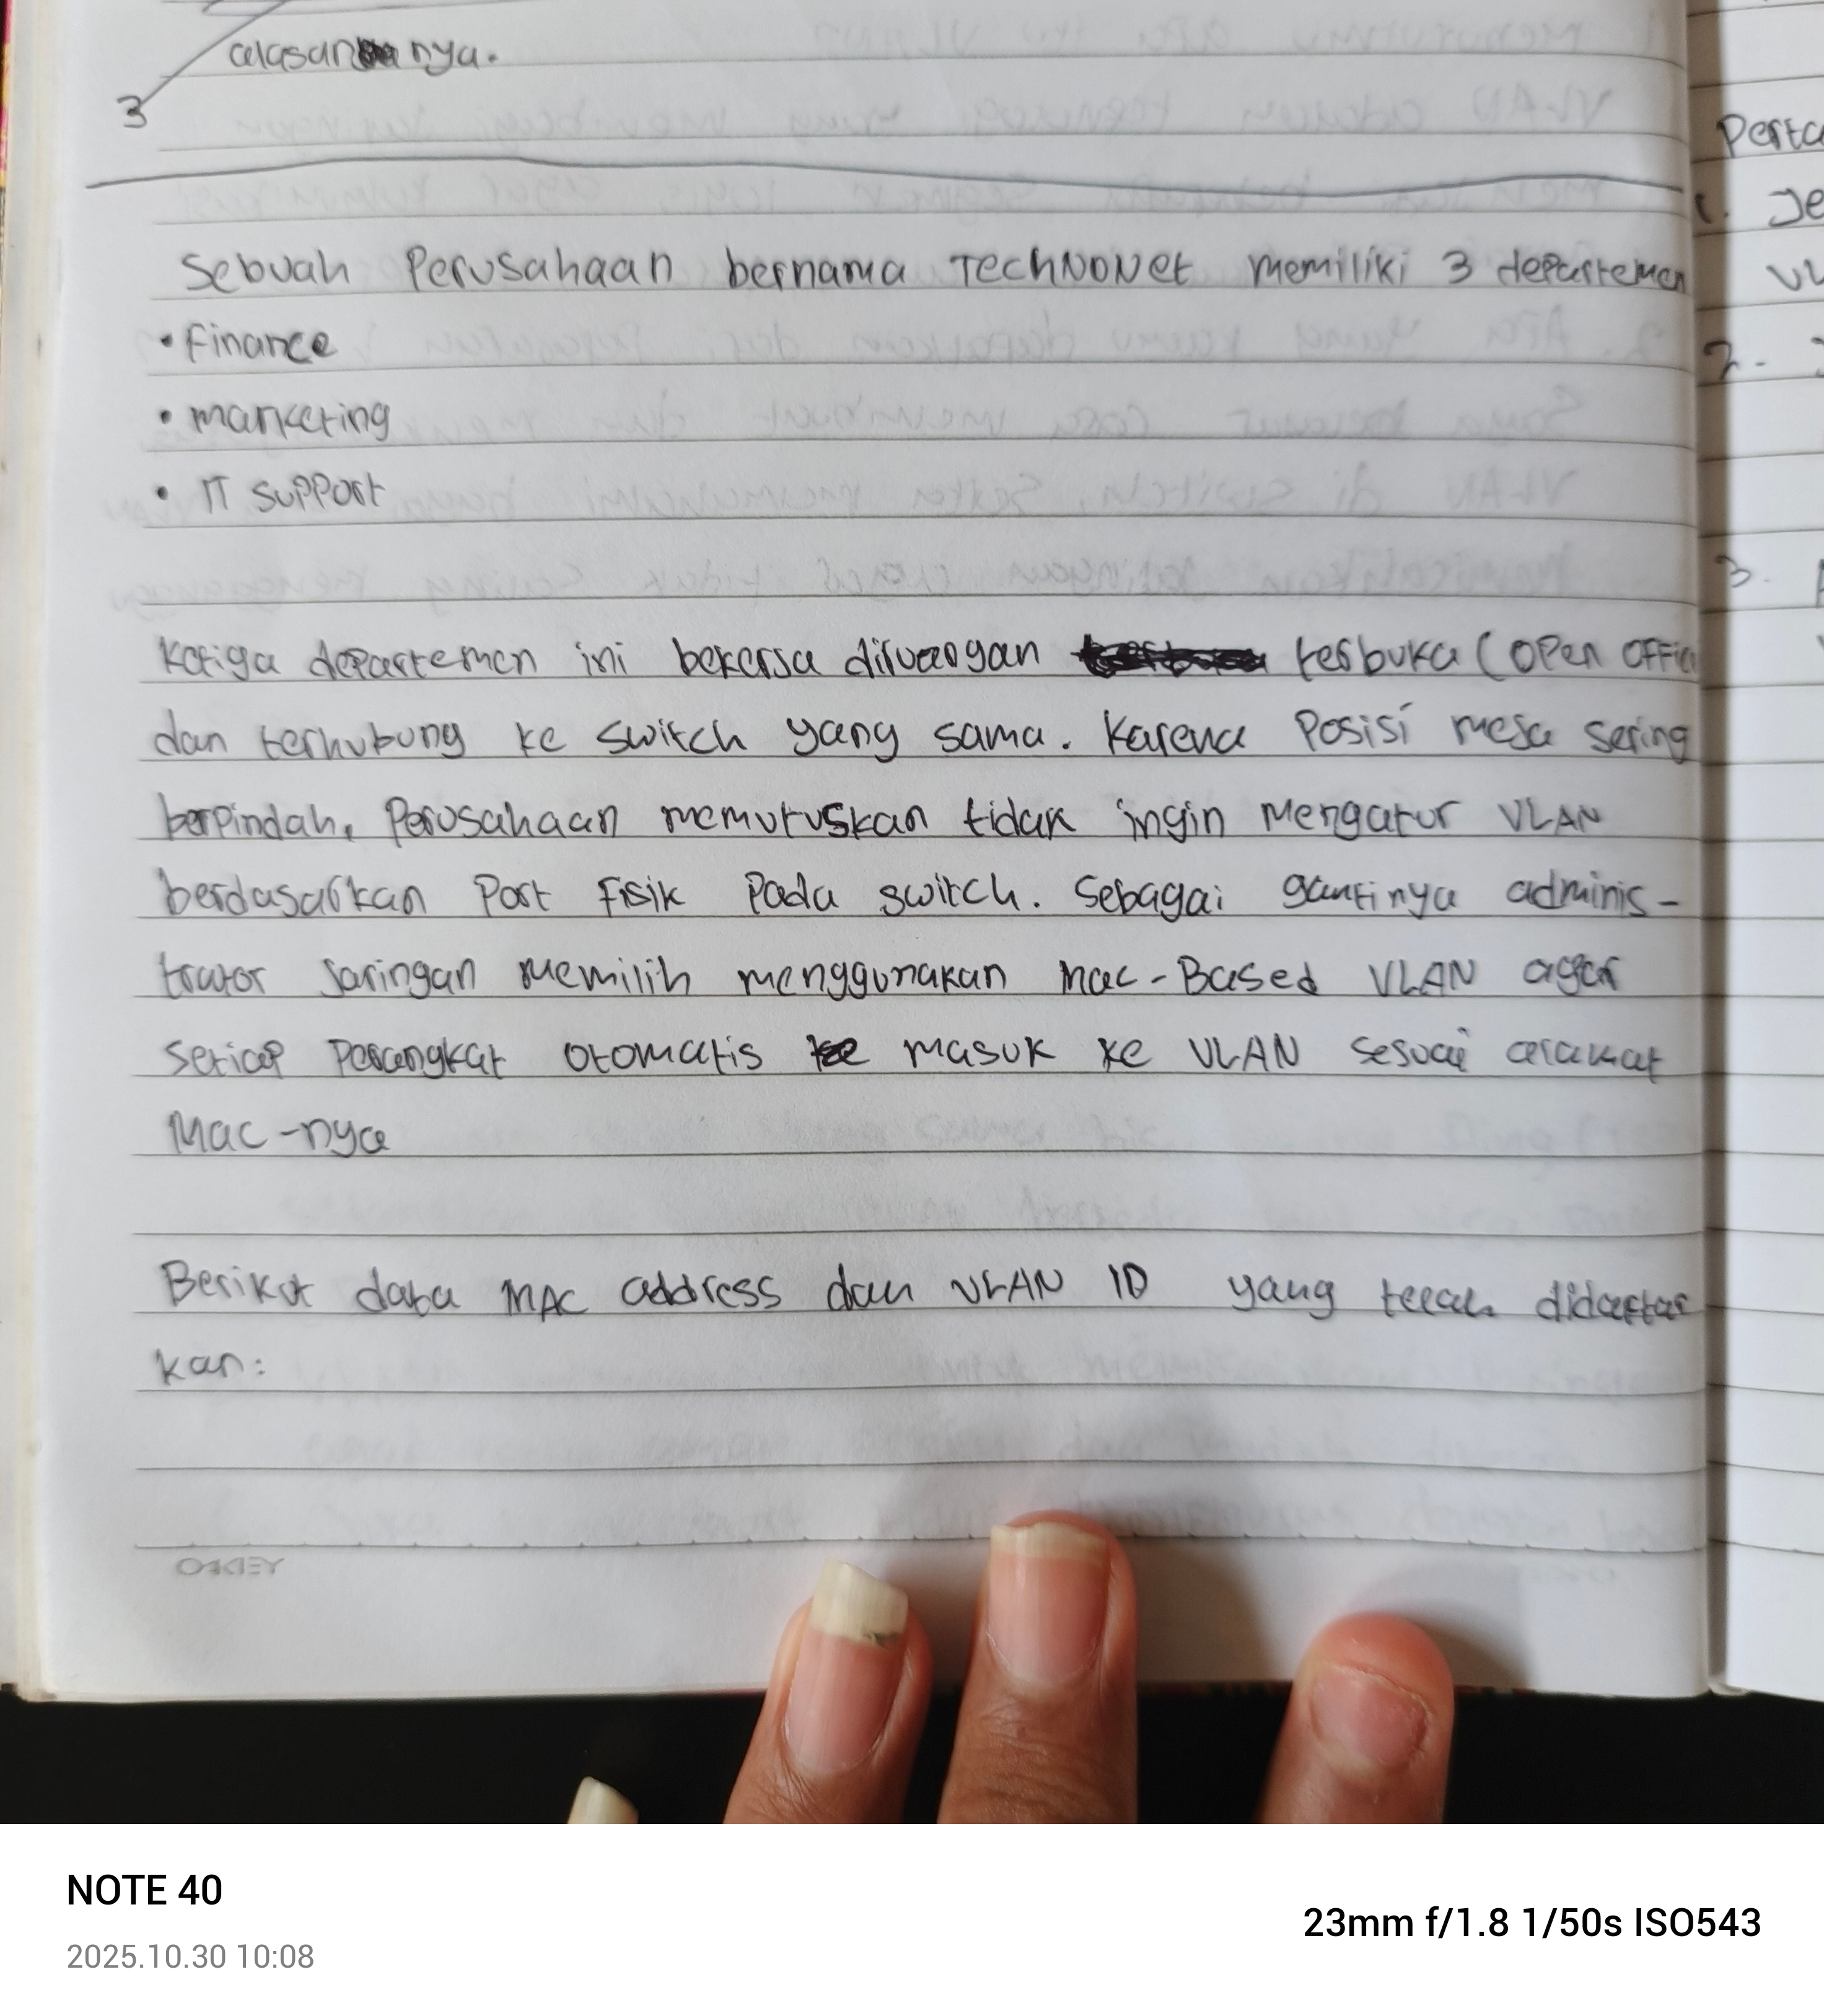 alasannya.
3
Sebuah Perusahaan bernama TechNoNet memiliki 3 departemen
• Finance
• marketing
• IT support
Ketiga departemen ini bekerja diruangan terbuka (open offic
dan terhubung ke switch yang sama. Karena Posisi meja sering
berpindah, Perusahaan memutuskan tidak ingin Mengatur VLAN
berdasarkan Port Fisik Pada switch. Sebagai gantinya adminis-
trator Jaringan memilih menggunakan Mac-Based VLAN agar
setiap Perangkat otomatis masuk ke VLAN sesuai alamat
Mac-nya
Berikut data MAC address dan VLAN ID yang telah didaftar
kan:
OKEY
Perta
1. Je
VL
2.
3.
NOTE 40
2025.10.30 10:08
23mm f/1.8 1/50s ISO543